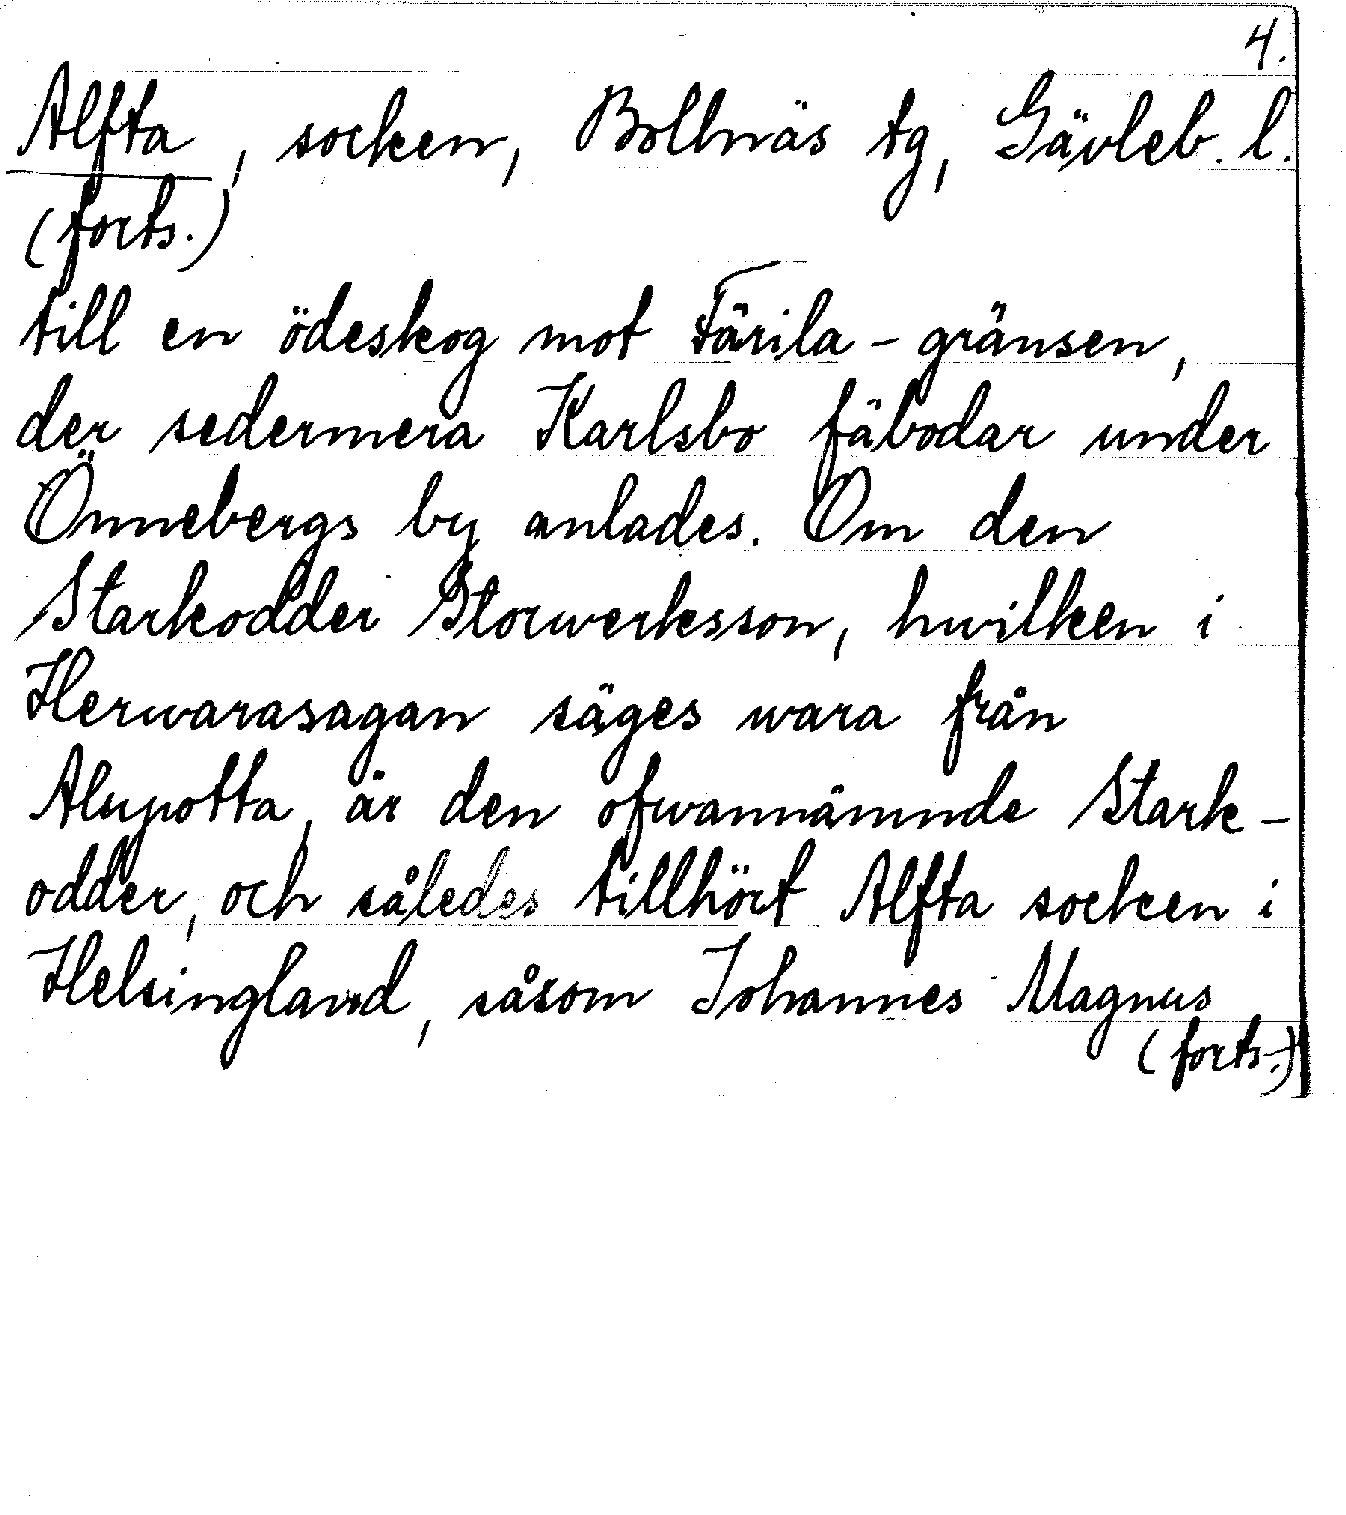 4.
Alfta, socken, Bollnäs tg, Gävleb. l.
(forts.)
till en ödeskog mot Färila-gränsen,
der sedermera Karlsbo fäbodar under
Önnebergs by anlades. Om den
Starkodder Storwerksson, hwilken i
Herwarasagan säges wara från
Alupotta, är den ofwannämnde Stark-
odder, och således tillhört Alfta socken i
Helsingland, såsom Johannes Magnus
(forts.)